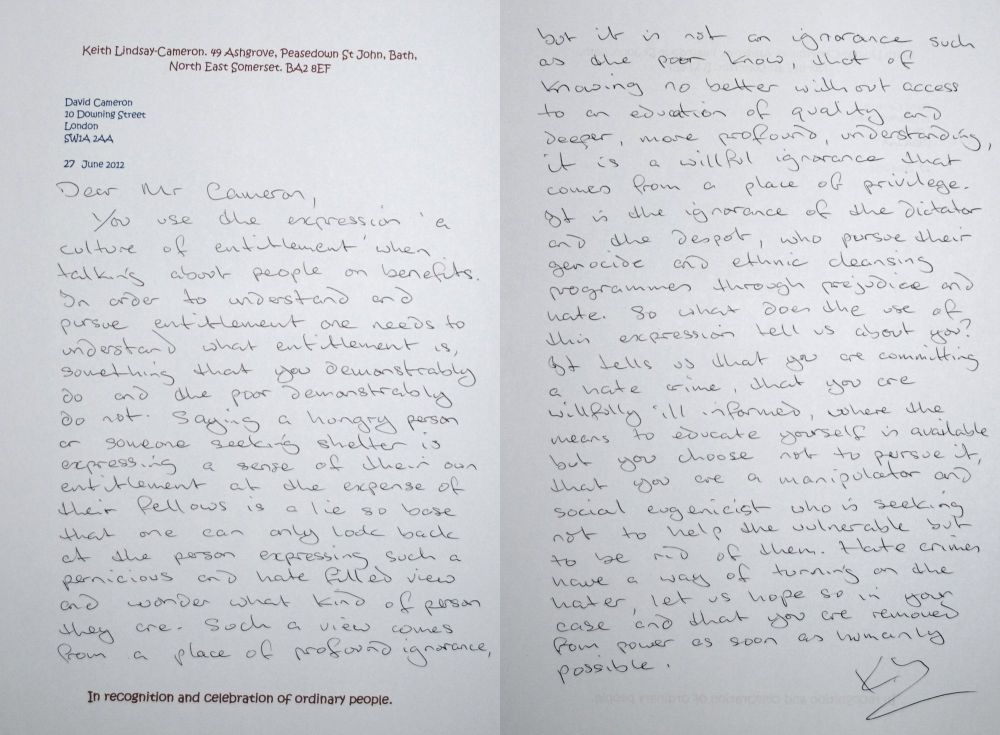 Keith Lindsay-Cameron. 49 Ashgrove, Peasedown St John, Bath,
North East Somerset. BA2 8EF
David Cameron
10 Downing Street
London
SW1A 2AA
27 June 2012
Dear Mr Cameron,
You use the expression 'a
culture of entitlement' when
talking about people on benefits.
In order to understand and
pursue entitlement one needs to
understand what entitlement is,
something that you demonstrably
do and the poor demonstrably
do not. Saying a hungry person
or someone seeking shelter is
expressing a sense of their own
entitlement at the expense of
their fellows is a lie so base
that one can only look back
at the person expressing such a
pernicious and hate filled view
and wonder what kind of person
they are. Such a view comes
from a place of profound ignorance,
In recognition and celebration of ordinary people.
but it is not an ignorance such
as the poor know, that of
knowing no better without access
to an education of quality and
deeper, more profound, understanding,
it is a willful ignorance that
comes from a place of privilege.
It is the ignorance of the dictator
and the despot, who pursue their
genocide and ethnic cleansing
programmes through prejudice and
hate. So what does the use of
this expression tell us about you?
It tells us that you are committing
a hate crime, that you are
willfully ill informed, where the
means to educate yourself is available
but you choose not to persue it,
that you are a manipulator and
social eugenicist who is seeking
not to help the vulnerable but
to be rid of them. Hate crimes
have a way of turning on the
hater, let us hope so in your
case and that you are removed
from power as soon as humanly
possible.